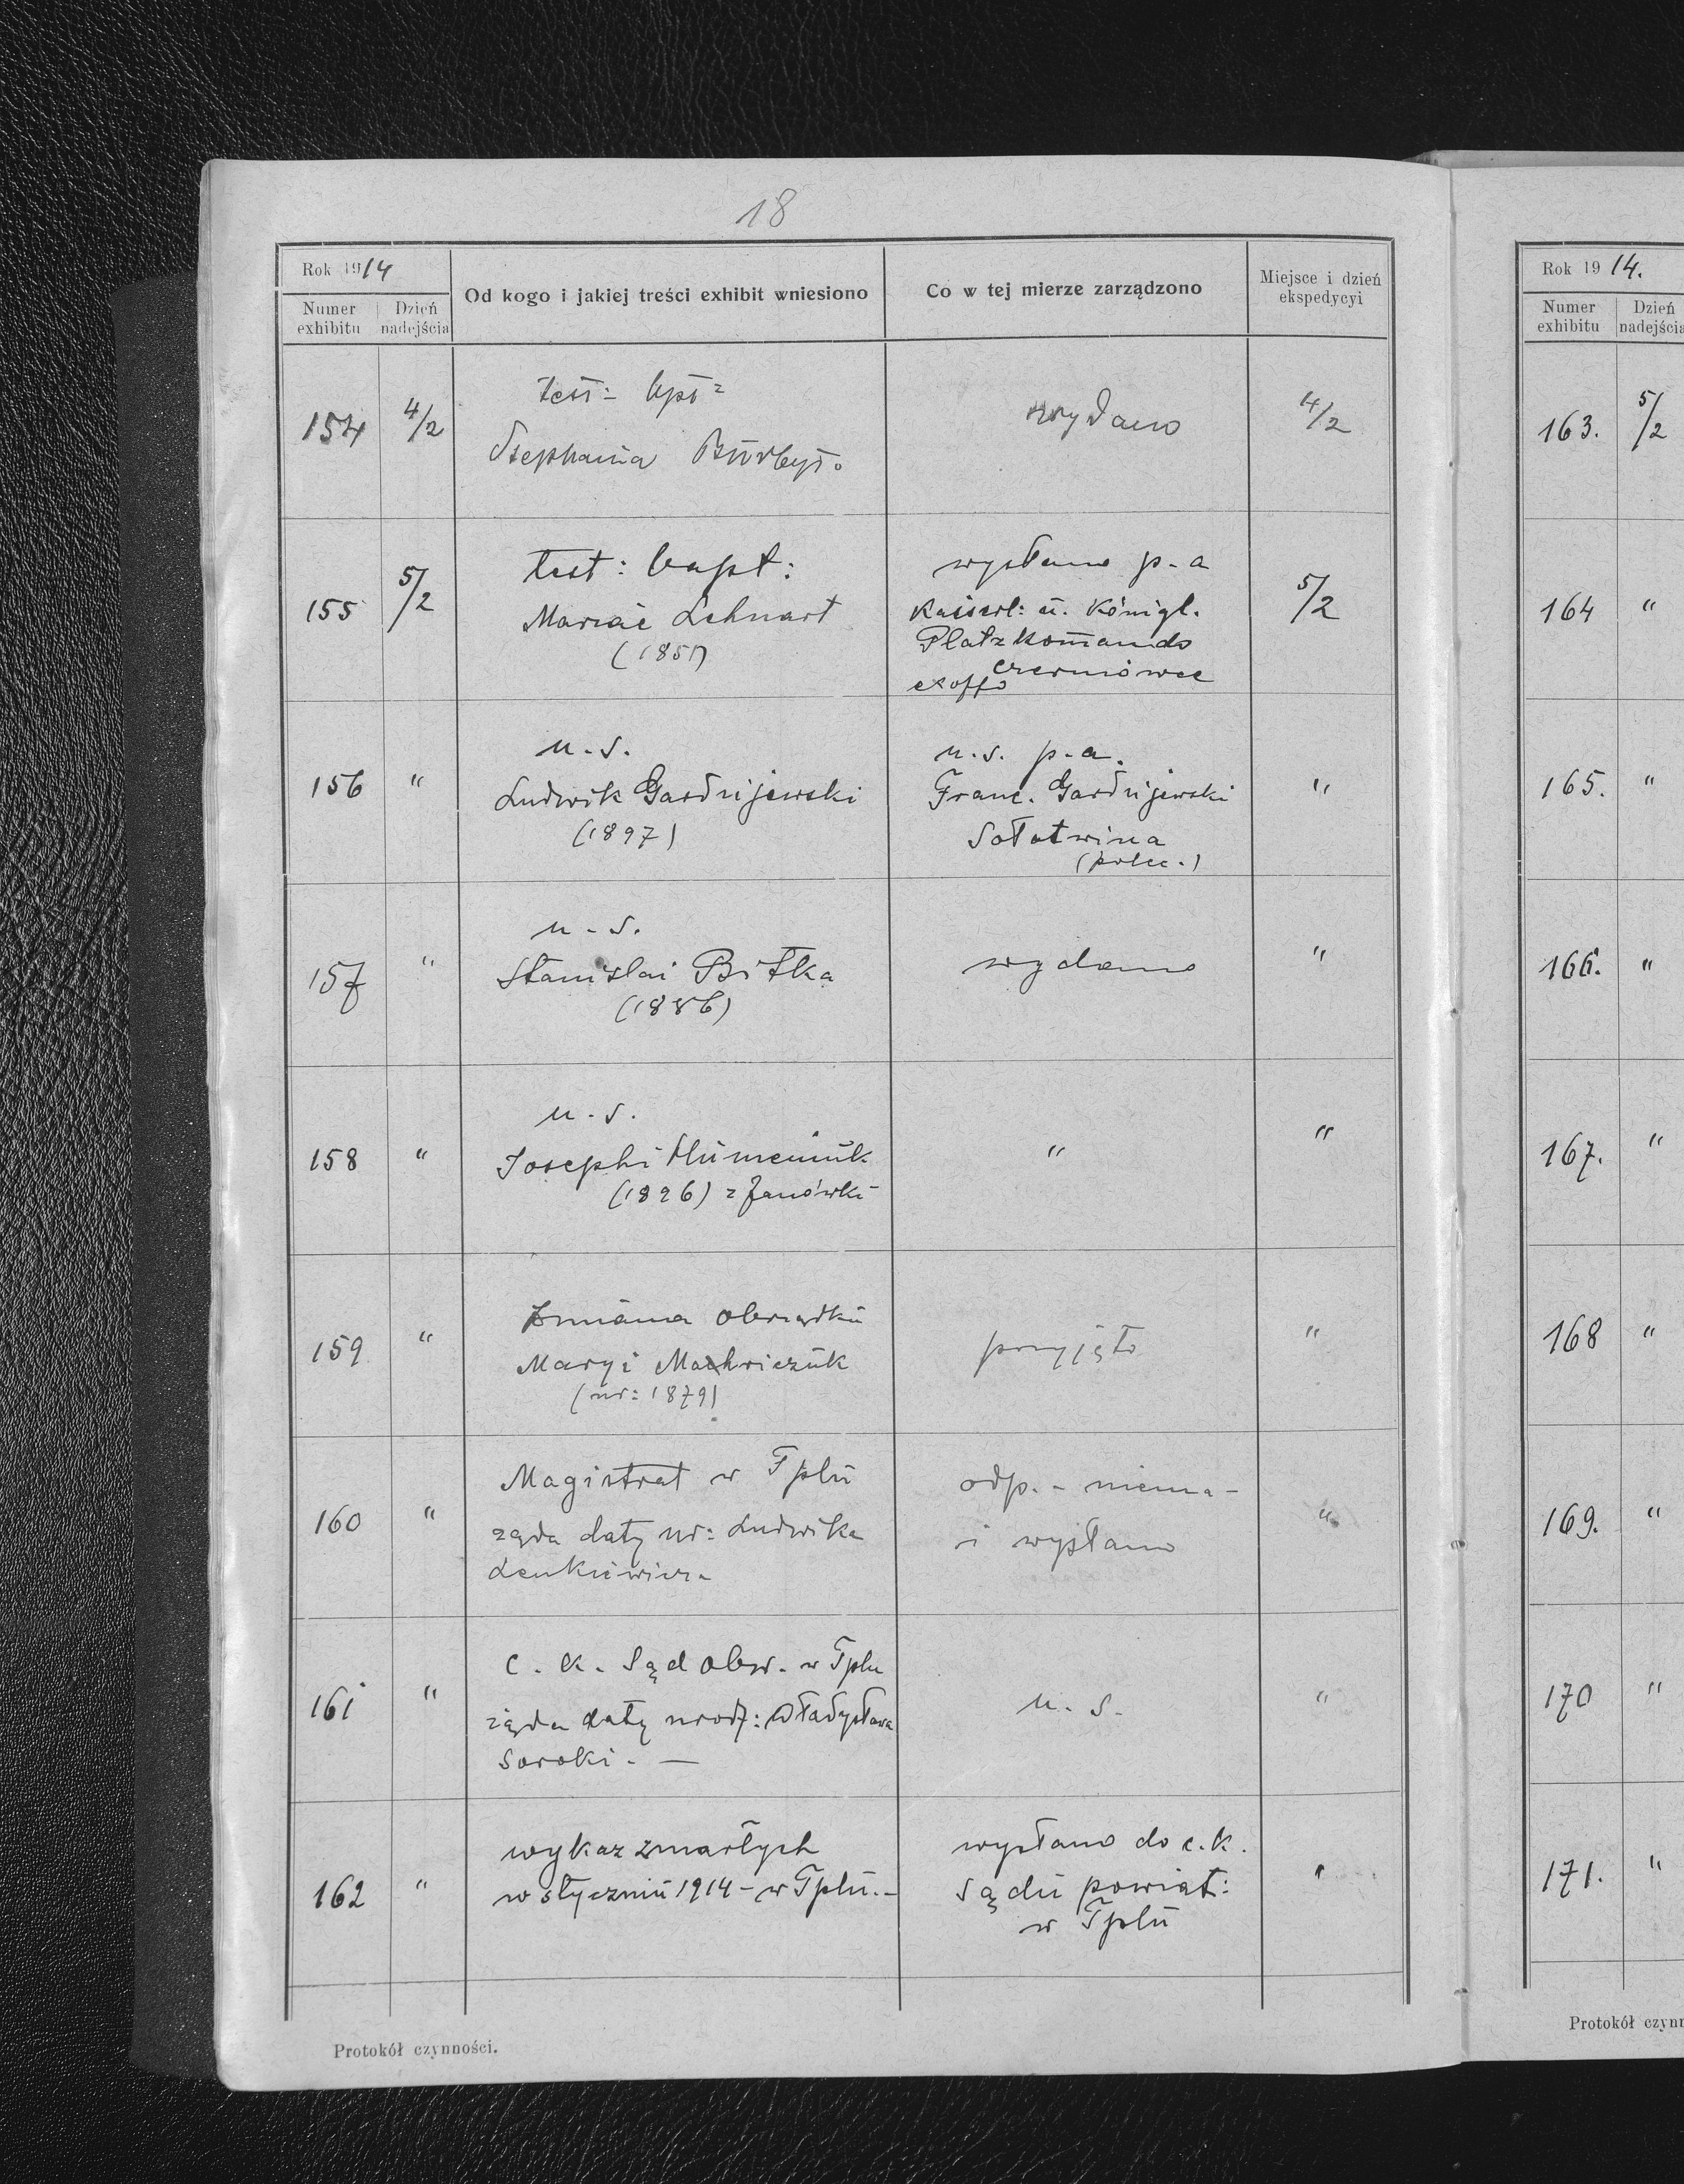 18
Rok 1914
Numer exhibitu
Dzień nadejścia
Od kogo i jakiej treści exhibit wniesiono
Co w tej mierze zarządzono
Miejsce i dzień ekspedycyi
154 4/2
test: bpt:
Stephania
wydano
4/2
155 5/2
test: bapt:
Mariae Lehnart
(1851)
wysłano p. a
Kaiserl: u. Königl.
Platzkommando
Czerniowce
exoffo
5/2
156 "
u. s.
Ludwik Gardzijewski
(1897)
u. s. p. a.
Franc. Gardzijewski
Sołotwina
(polec.)
"
157 "
u. s.
Stanislai Bitka
(1886)
wydano
"
158 "
u. s.
Josephi Humeniuk
(1896) z Janówki
"
"
159 "
Zmiana obrządku
Maryi
(ur: 1879)
przyjęto
"
160 "
Magistrat w Tplu
żąda daty ur: Ludwika
Lenkiewicza
odp. - niema -
i wysłano
"
161 "
c. k. Sąd obw. w Tplu
żąda daty urodz: Władysława
Soroki. —
u. s.
"
162 "
wykaz zmarłych
w styczniu 1914 - w Tplu. -
wysłano do c. k.
Sądu powiat:
w Tplu
"
Protokół czynności.
Rok 1914.
Numer exhibitu
Dzień nadejścia
163. 5/2
164 "
165. "
166. "
167. "
168 "
169. "
170 "
171. "
Protokół